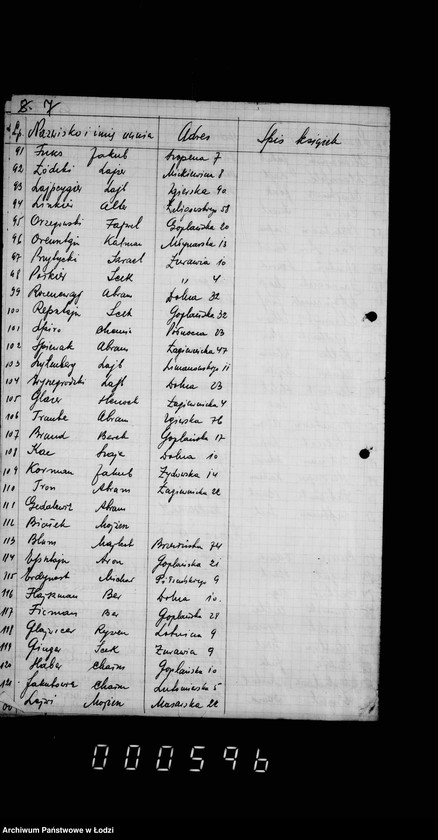 8. 7
Lp. Nazwisko i imię ucznia Adres Spis książek
91 Fuks Jakub Szopena 7
92 Łódzki Lajzer Mickiewicza 8
93 Lajpcygier Lajb Zgierska 90
94 Linkier Alter 58
95 Orzegowski Fajwel Goplańska 20
96 Orensztajn Kalman Młynarska 13
97 Przytycki Israel Żurawia 10
98 Icek " 4
99 Rozencwajg Abram Dolna 32
100 Icek Goplańska 32
101 Szpiro Północna 23
102 Śpiewak Abram Łagiewnicka 47
103 Lajb Limanowskiego 11
104 Wyszegrodzki Lajb Dolna 23
105 Glazer Henoch Łagiewnicka 4
106 Traube Abram Zgierska 76
107 Brand Berek Goplańska 17
108 Kac Szaja Dolna 10
109 Korman Jakub Żydowska 14
110 Tron Abram Łagiewnicka 22
111 Gedalewicz Abram
112 Mojżesz
113 Blum Brzezińska 74
114 Aron Goplańska 21
115 9
116 Hajzman Ber Dolna 10.
117 Ficman Ber Goplańska 28
118 Glajwicer Rywen Lotnicza 9
119 Ginger Icek Żurawia 9
120 Haber Chaim Goplańska 10
121 Jakubowicz Chaim Lutomierska 5
Lajzer Mojżesz Masarska 22
000596
Archiwum Państwowe w Łodzi